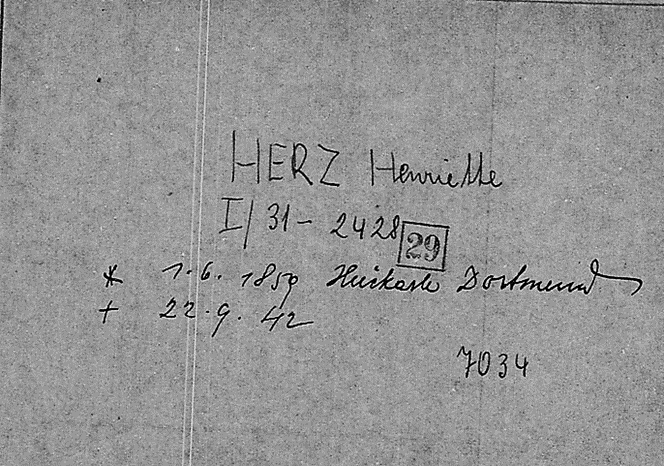 HERZ Henriette
I/31 - 2428 29
* 1.6.1859 Huckarde Dortmund
+ 22.9.42
7034